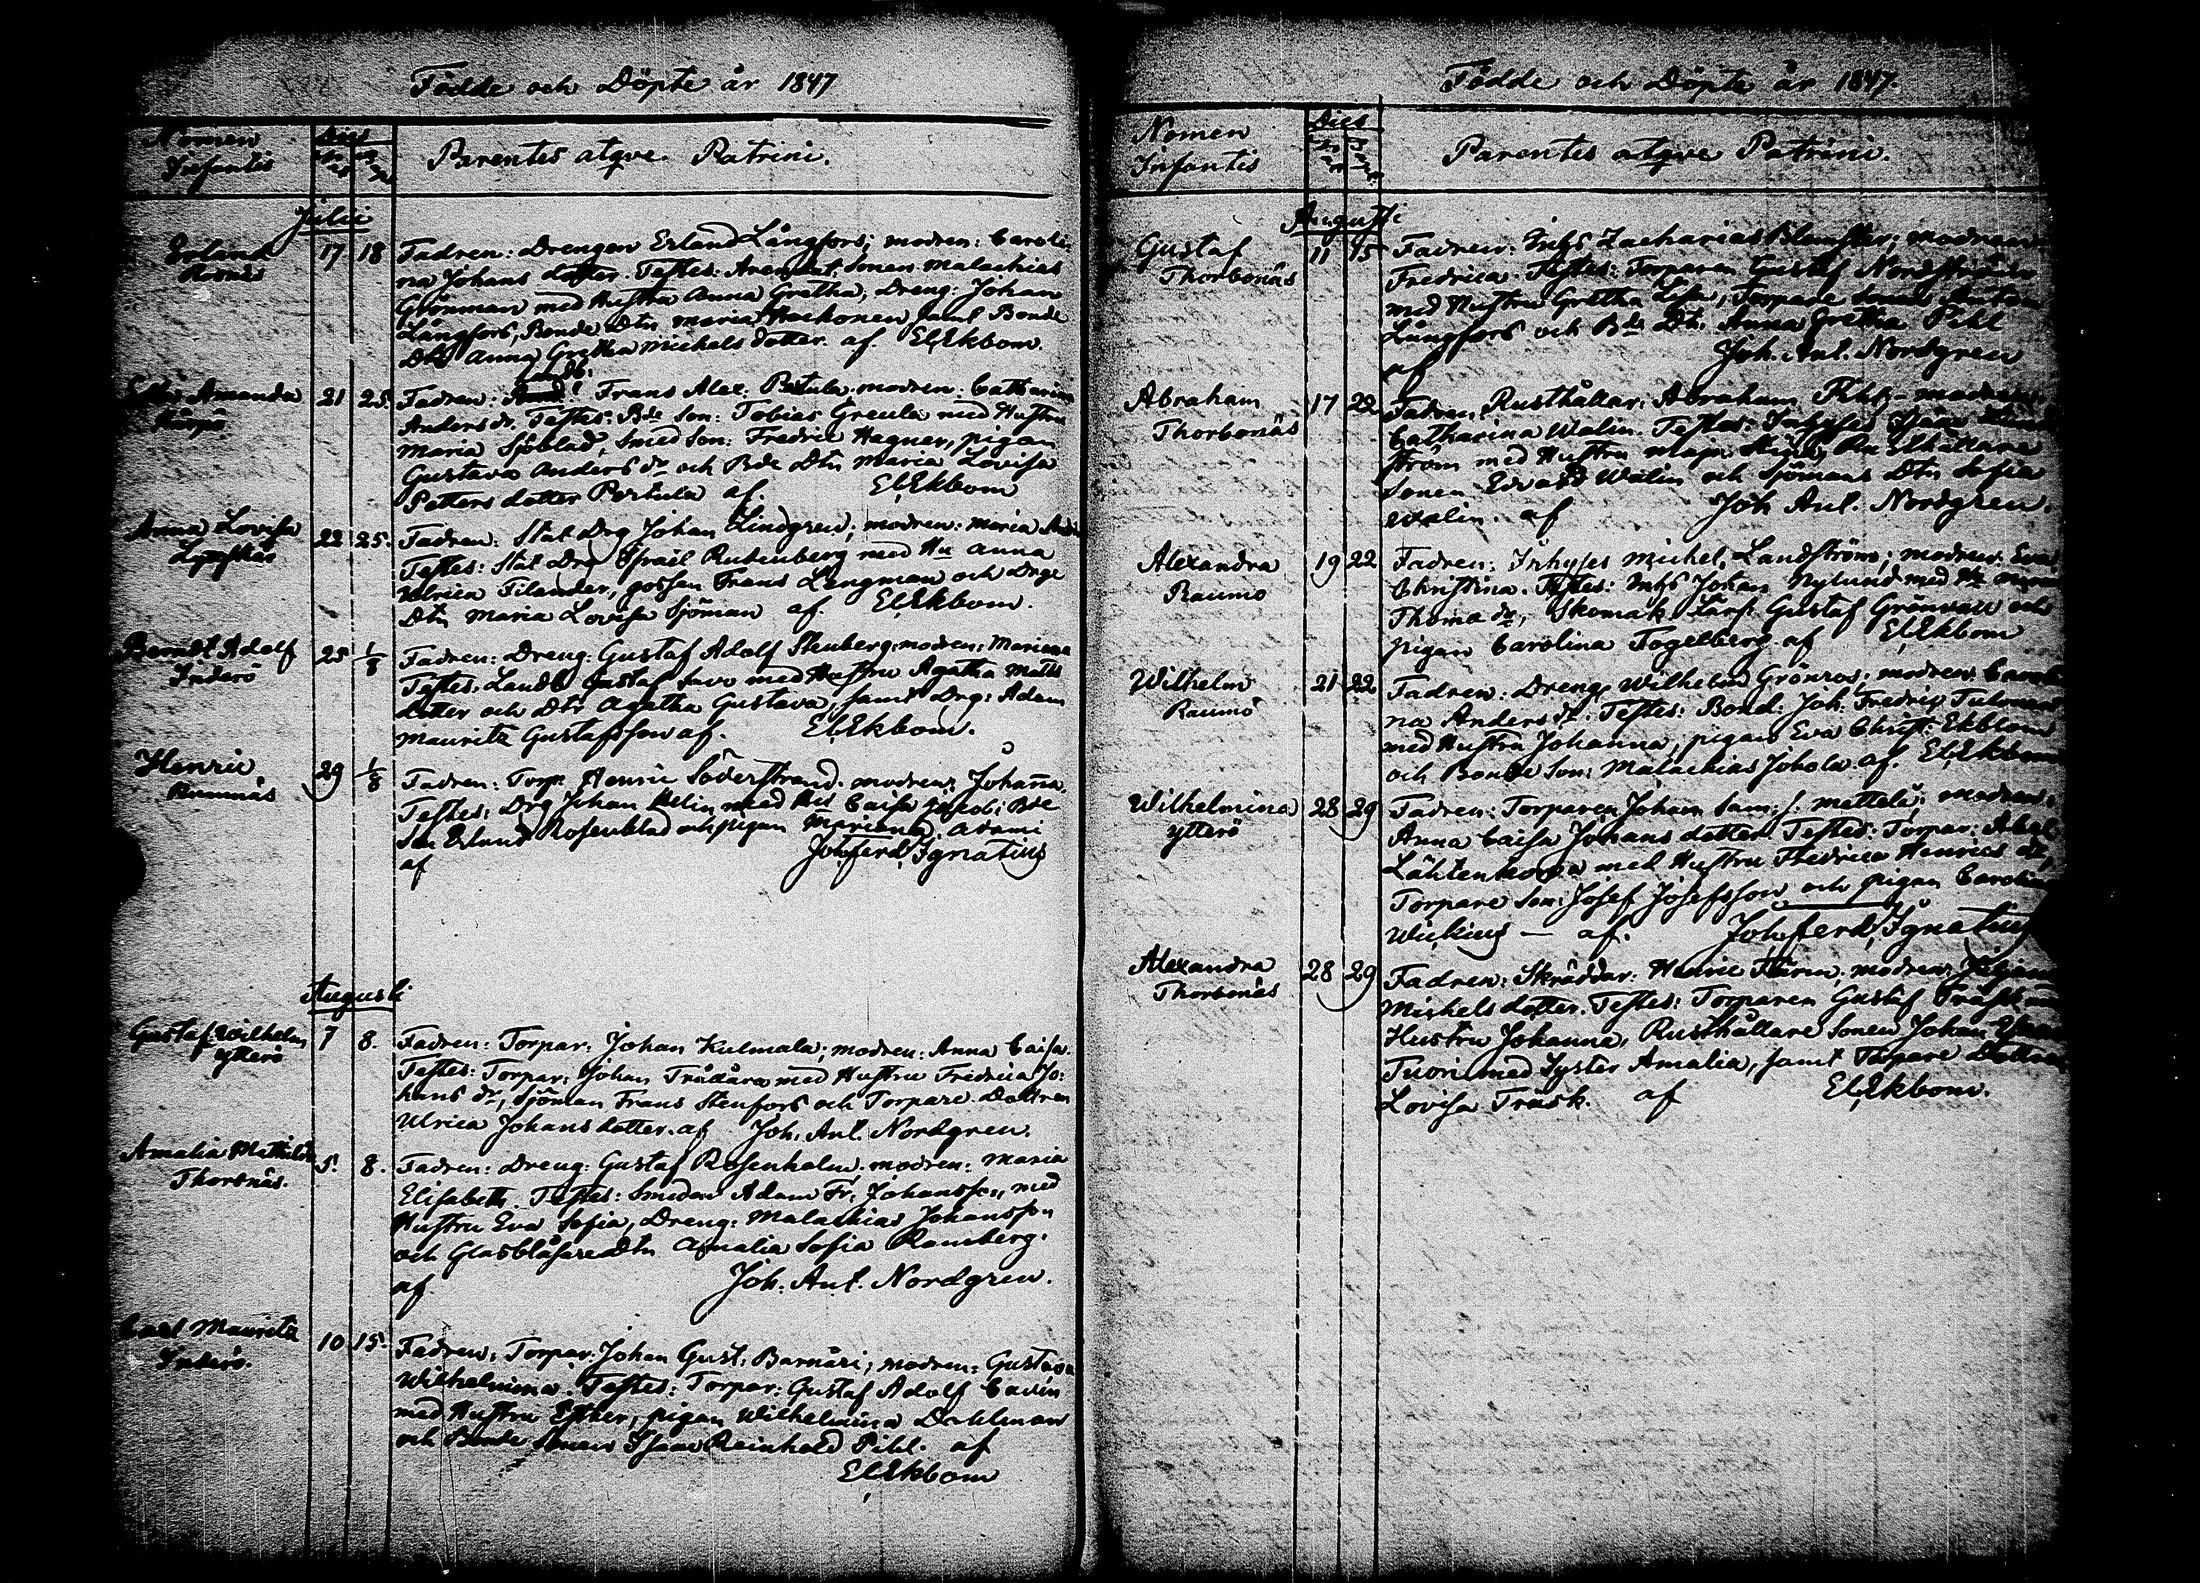 Födde och Döpte år 1847
Nomen
Infantis
Dies
Parentes atqve Patrini.
Julii
Erland
17 18
Fadren: Drengen Erland Långfors; modren: Caroli
na Johans dotter. Testes: Arendat. Sonen Malachias
Grönman med Hustru Anna Gretha, Dreng: Johan
Långfors, Bonde Dtr Maria Samt Bonde
Dtr Anna Gretha Michels dotter. af El. Ekbom.
Amanda
21 25.
Landb:
Fadren: Frans Alex. Petula. modren: Catharina
Anders dr. Testes: Bde Son: Tobias Greula med Hustru
Maria Sjöblad, Smed Son: Fredric Hagner, pigan
Gustava Anders dr och Bde Dtr Maria Lovisa
Petters dotter Pertula af. El. Ekbom
Anna Lovisa
22 25.
Fadren: Stat Drg Johan Lindgren; modren: Maria
Testes: Stat Drg Israil Rutenberg med Hu Anna
Ulrica Tilander, gossen Frans Lengman och Drge
Dtr Maria Lovisa Sjöman af. El. Ekbom.
Berndt Adolf
Inderö
25 1/8
Fadren: Dreng: Gustaf Adolf Stenberg. modren: Mariana
Testes: Landb Gustaf med Hustru Agatha Matts
dotter och Dtr Agatha Gustava, samt Drg: Adam
Mauritz Gustafsson af. El. Ekbom.
Henric
29 1/8
Fadren: Torp. Henric Söderstrand. modren: Johana.
Testes: Drg Johan Helin med Hu Caisa Jacob: Bde
Son Erland Rosenblad och pigan Mariana Adami
af Joh. ferd. Ignatius
Augusti
Gustaf Wilhelm
ytterö
7 8.
Fadren: Torpar: Johan Kulmala; modren: Anna Caisa.
Testes: Torpar: Johan Trädåra med Hustru Fredrica Jo:
hans dr, Sjöman Frans Stenfors och Torpare Dottren
Ulrica Johans dotter. af Joh. Ant. Nordgren.
Amalia Mathilda
Thorsnäs.
5. 8.
Fadren: Dreng: Gustaf Rosenholm. modren: Maria
Elisabeth. Testes: Smeden Adam Fr. Johansson, med
Hustru Eva Sofia, Dreng: Malachias Johansson
och Glasblåsare Dtr Amalia Sofia Ramberg.
af Joh. Ant. Nordgren.
Carl Mauritz
Inderö.
10 15.
Fadren: Torpar: Johan Gust: Barnäri; modren: Gustava
Wilhelmina. Testes: Torpar: Gustaf Adolf Cavén
med Hustru Esther, pigan Wilhelmina Dahlman
och Bonde Sonen Isaac Reinhold Pihl. af
El. Ekbom
Födde och Döpte år 1847.
Nomen
Infantis
Dies
Parentes atqve Patrini.
Augusti
Gustaf
Thorbonäs
11 15
Fadren: Inhs Zacharias Blomster; modren:
Fredrica. Testes: Torparen Gustaf Nordström
med Hustru Gretha Lisa, Torpare Sonen Anton
Långfors och Bde Dtr. Anna Gretha Pihl
af Joh. Ant. Nordgren
Abraham
Thorbonäs
17 22
Fadren. Rusthållar: Abraham Pihl. modren:
Catharina Walin. Testes: Inhyses
ström med Hustru Maja Rusthållare
Sonen Edvard Walin och Sjömans Dtr Sofia
Walin. af Joh. Ant. Nordgren.
Alexandra
Raumo
19 22
Fadren: Inhyses Michel Landström; modren: Eva
Christina. Testes: Inhs Johan Nylund med Hu
Thoma dr, Skomak Lärl. Gustaf Grönvall och
pigan Carolina Fogelberg. af El. Ekbom
Wilhelm
Raumo
21 22
Fadren: Dreng. Wilhelm Grönros; modren: Caroli
na Anders dr. Testes: Bond: Joh. Fredric
med Hustru Johanna, pigan Eva Christ: Ekblom
och Bonde Son: Malachias Johola. af. El. Ekbom
Wilhelmina
ytterö
28 29
Fadren: Torparen Johan Sam: s. Mattelä; modren:
Anna Caisa Johans dotter. Testes: Torpar: Abel
Lähtenkorva med Hustru Fredrica Henrics dr,
Torpare Son: Josef Josefsson och pigan Carolina
af. Joh. ferd. Ignatius
Alexandra
Thorbonäs
28 29
Fadren: Skräddar: Henric modren:
Michels dotter. Testes: Torparen Gustaf Träsk
Hustru Johanna, Rusthållare Sonen Johan
Tuori med Syster Amalia, samt Torpare Dottren
Lovisa Träsk. af El. Ekbom.